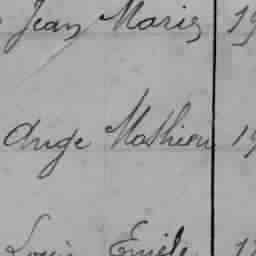 Jean Marie 19
Ange Mathieu 19
Louis Emile 1